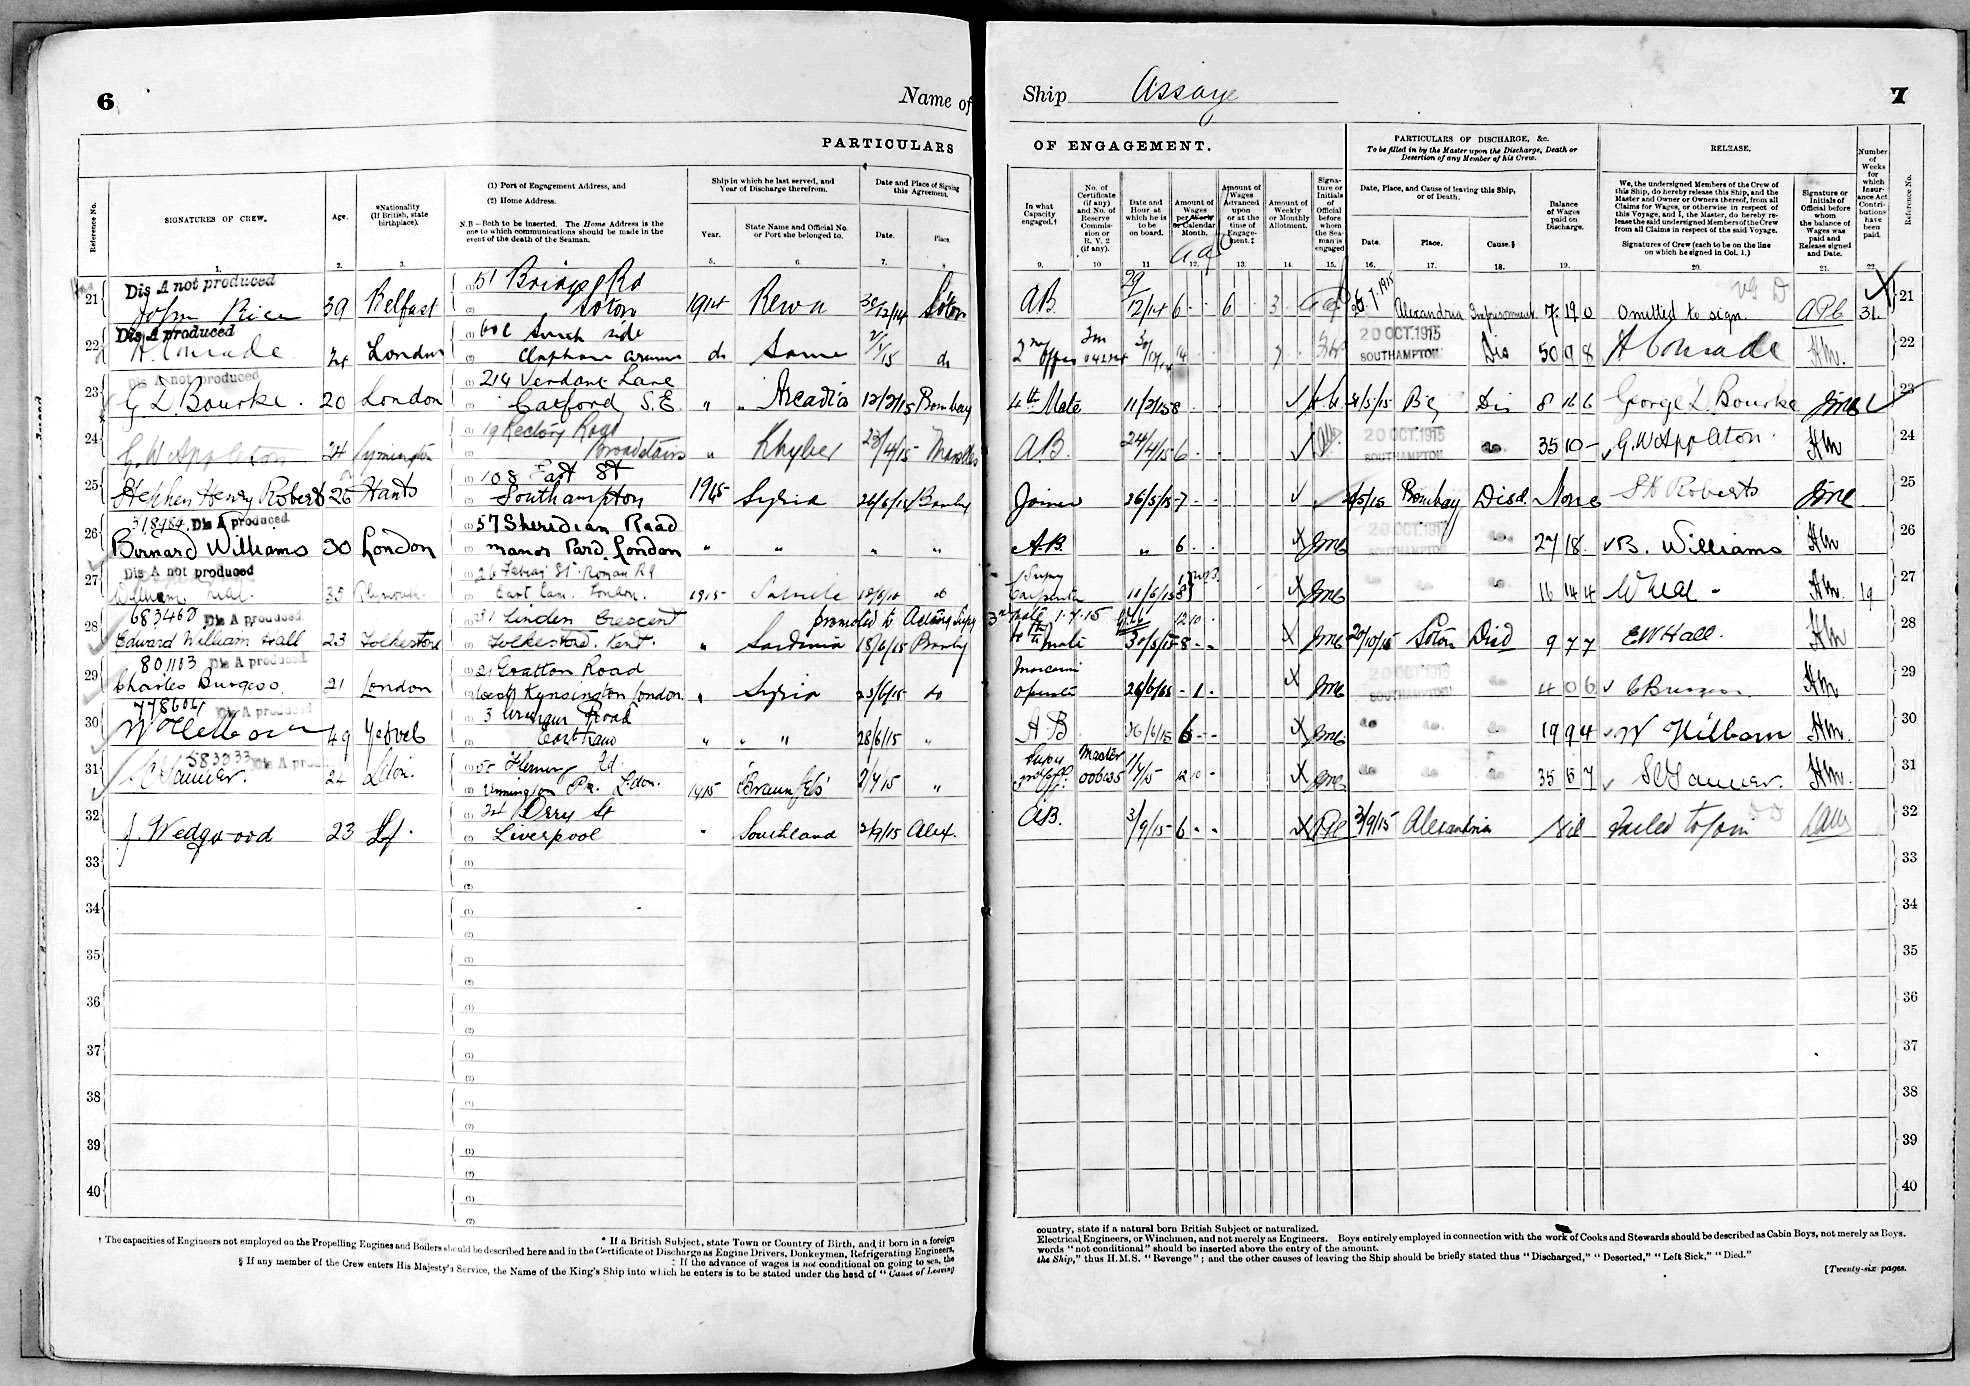 6
Name of
PARTICULARS
Reference No.
SIGNATURES OF CREW.
Age.
*Nationality
(If British, state
birthplace).
(1) Port of Engagement Address, and
(2) Home Address.
N.B - Both to be inserted. The Home Address is the
one to which communications should be made in the
event of the death of the Seaman.
Ship in which he last served, and
Year of Discharge therefrom.
Year.
State Name and Official No.
or Port she belonged to.
Date and Place of Signing
this Agreement.
Date.
Place.
1. 2. 3. 5. 6. 7. 8
Dis A not produced
21 John Rice 39 Belfast (1) 51 Bridge Rd
(2) Soton 1914 Rewa 30/12/14 Soton
Dis A produced
22 H. Conrade 24 London 60c South side
Clapham Common do Same do
Dis A not produced
23 G L Bourke. 20 London (1) 214 Verdant Lane
(2) Catford S.E. " " Arcadia 12/2/15 Bombay
24 G. W Appleton 24 Lymington (1) 19 Rectory Road
Broadstairs " Khyber 23/4/15
25 Stephen Henry Roberts 26 Hants (1) 108 East St
(2) Southampton 1915 Syria 26/5/15 Bombay
318484 Dis A produced
26 Bernard Williams 30 London (1) 57 Sheridian Road
(2) Manor Park. London " " " "
Dis A not produced
27 William Neal. 35 Plymouth. (1) 26 St. Roman Rd
(2) East Lon. London. 1915 do
683460 Dis A produced
28 Edward William Hall 23 Folkestone (1) 31 Linden Crescent promoted to Acting
(2) Folkestone. Kent. " Sardinia 18/6/15 Bombay
801103 Dis A produced
29 Charles Burgess. 21 London (1) 21 Gratton Road
(2) West Kensington London. " Syria 23/6/15 do
778604 Dis A produced
30 49 Yeovil (1) 3 Road
(2) East Ham " " " 28/6/15 "
583033 Dis A pro
31 24 (1) Fleming Rd.
(2) 1915 2/7/15 "
32 J Wedgwood 23 (1) 34 Derry St
(2) Liverpool " Southland 2/9/15 Alex.
33
34
35
36
37
38
39
40
* If a British Subject, state Town or Country of Birth, and if born in a foreign
† The capacities of Engineers not employed on the Propelling Engines and Boilers should be described here and in the Certificate of Discharge as Engine Drivers, Donkeymen, Refrigerating Engineers,
‡ If the advance of wages is not conditional on going to sea, the
§ If any member of the Crew enters His Majesty's Service, the Name of the King's Ship into which he enters is to be stated under the head of "Cause of Leaving
Ship Assaye
7
OF ENGAGEMENT.
PARTICULARS OF DISCHARGE, &c.
To be filled in by the Master upon the Discharge, Death or
Desertion of any Member of his Crew.
RELEASE.
In what
Capacity
engaged.†
No. of
Certificate
(if any)
and No. of
Reserve
Commis-
sion or
R. V. 2
(if any).
Date and
Hour at
which he is
to be
on board.
Amount of
Wages
per Week
or Calendar
Month.
Amount of
Wages
Advanced
upon
or at the
time of
Engage-
ment.‡
Amount of
Weekly
or Monthly
Allotment.
Signa-
ture or
Initials of
Official
before
whom
the Sea-
man is
engaged
Date, Place, and Cause of leaving this Ship,
or of Death.
Date.
Place.
Cause.§
Balance
of Wages
paid on
Discharge.
We, the undersigned Members of the Crew of
this Ship, do hereby release this Ship, and the
Master and Owner or Owners thereof, from all
Claims for Wages, or otherwise in respect of
this Voyage, and I, the Master, do hereby re-
lease the said undersigned Members of the Crew
from all Claims in respect of the said Voyage.
Signatures of Crew (each to be on the line
on which he signed in Col. 1.)
Signature or
Initials of
Official before
whom the
balance of
Wages was
paid and
Release signed
and Date.
Number
of
Weeks
for
which
Insur-
ance Act
Contri-
butions
have
been
paid.
Reference No.
9. 10 11 12. 13. 14. 15. 16. 17. 18. 19. 20. 21. 22
AB 29/12/14 6 - - 6 3 1915 Alexandria Imprisonment 7 19 0 Omitted to sign 21
2nd Offr 20 OCT.1915 SOUTHAMPTON Dis 50 9 8 H Conrade Hm. 22
4th Mate 11/2/15 8 Dis 8 16 6 George L. Bourke 23
A.B. 24/4/15 6 20 OCT.1915 SOUTHAMPTON do 35 10 - G. W Appleton. Hm 24
Joiner 26/5/15 7 Bombay Disd. None S H Roberts 25
A.B. " 6 20 OCT.1915 do 27 18 - B. Williams Hm 26
Carpenter 11/6/15 do do do 16 14 4 W Neal - Hm. 19 27
3rd Mate 1.7.15 12 10
4th Mate 8 20/10/15 Soton Disd 9 7 7 E W Hall. Hm 28
Marconi
Operator - 1 - 20 OCT.1915 SOUTHAMPTON do 4 0 6 Hm 29
A B 6 - - do do do 19 9 4 Hm. 30
Master
006635 12 10 - do do do 35 Hm. 31
A.B. 3/9/15 6 - - 3/9/15 Alexandria Nil Failed to join 32
33
34
35
36
37
38
39
40
country, state if a natural born British Subject or naturalized.
Electrical Engineers, or Winchmen, and not merely as Engineers. Boys entirely employed in connection with the work of Cooks and Stewards should be described as Cabin Boys, not merely as Boys.
words "not conditional" should be inserted above the entry of the amount.
the Ship," thus H.M.S. "Revenge"; and the other causes of leaving the Ship should be briefly stated thus "Discharged," "Deserted," "Left Sick," "Died."
[Twenty-six pages.